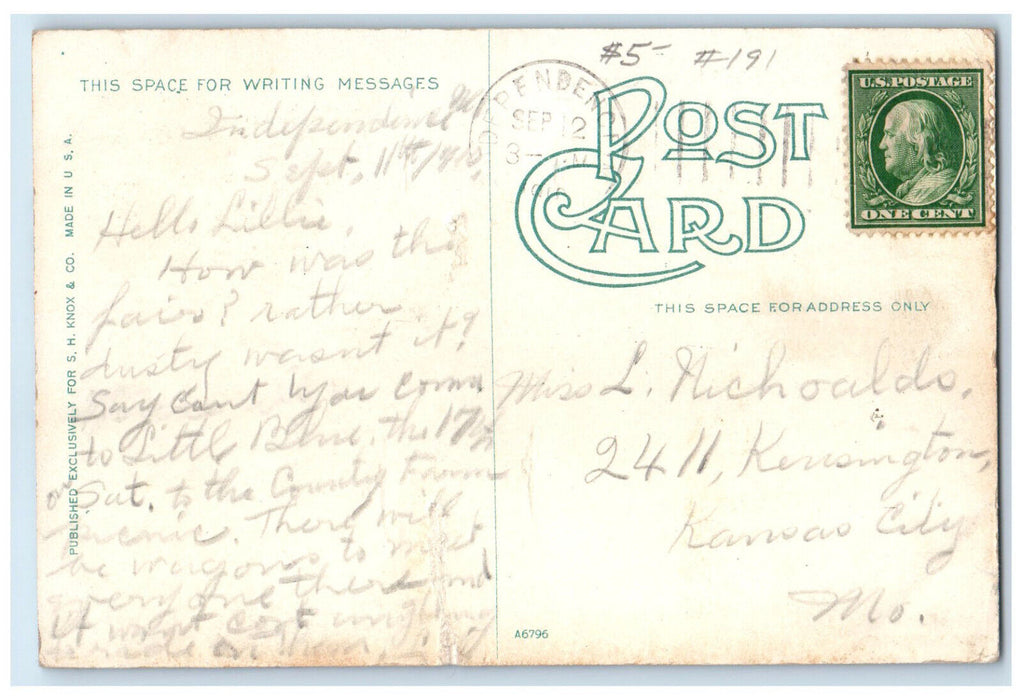 #5- #191
THIS SPACE FOR WRITING MESSAGES
Independence Mo
Sept, 11th/10,
Hello Lillie,
How was the
fair? rather
dusty wasnt it?
Say cant you come
to Little Blue, the 17th
or Sat. to the County Farm
picnic. There will
be wagons to meet
everyone there and
it wont cost anything
to ride on them,
PUBLISHED EXCLUSIVELY FOR S. H. KNOX & CO. MADE IN U S A.
INDEPENDENCE
SEP 12
3-
POST
CARD
U.S. POSTAGE
ONE CENT
THIS SPACE FOR ADDRESS ONLY
Miss L. Nichoalds.
2411, Kensington,
Kansas City
Mo.
A6796